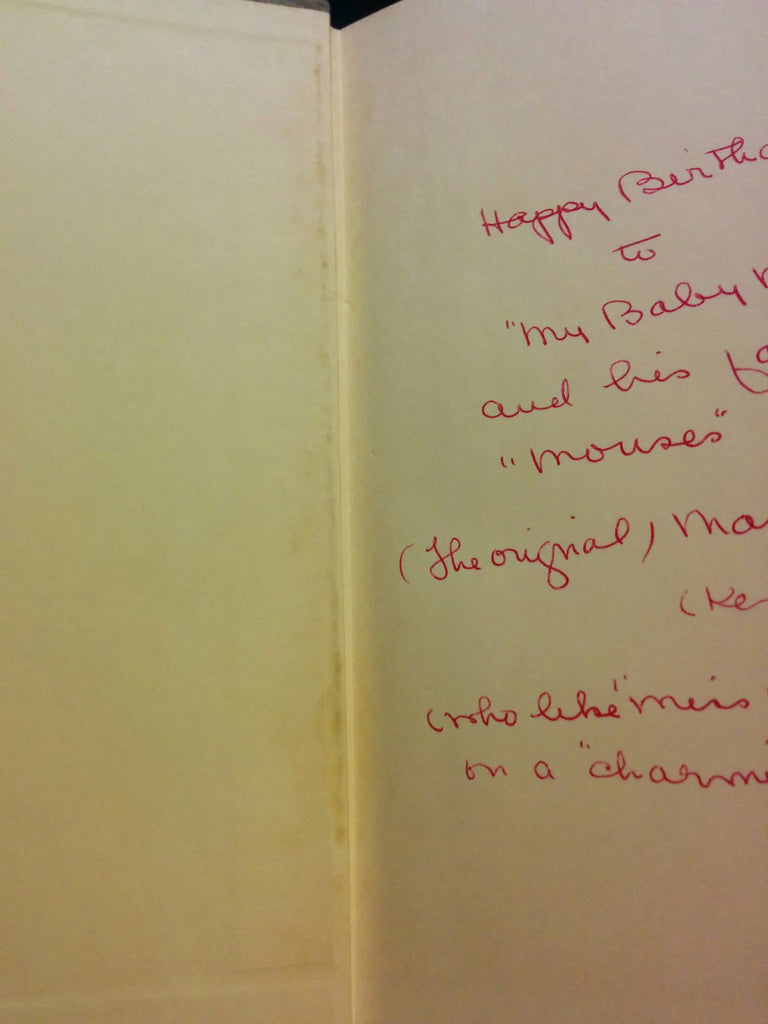 Happy Birtha
to
"my Baby
and his
"mouses"
(The orignial) Ma
(Ke
(who like "miss
on a "charm